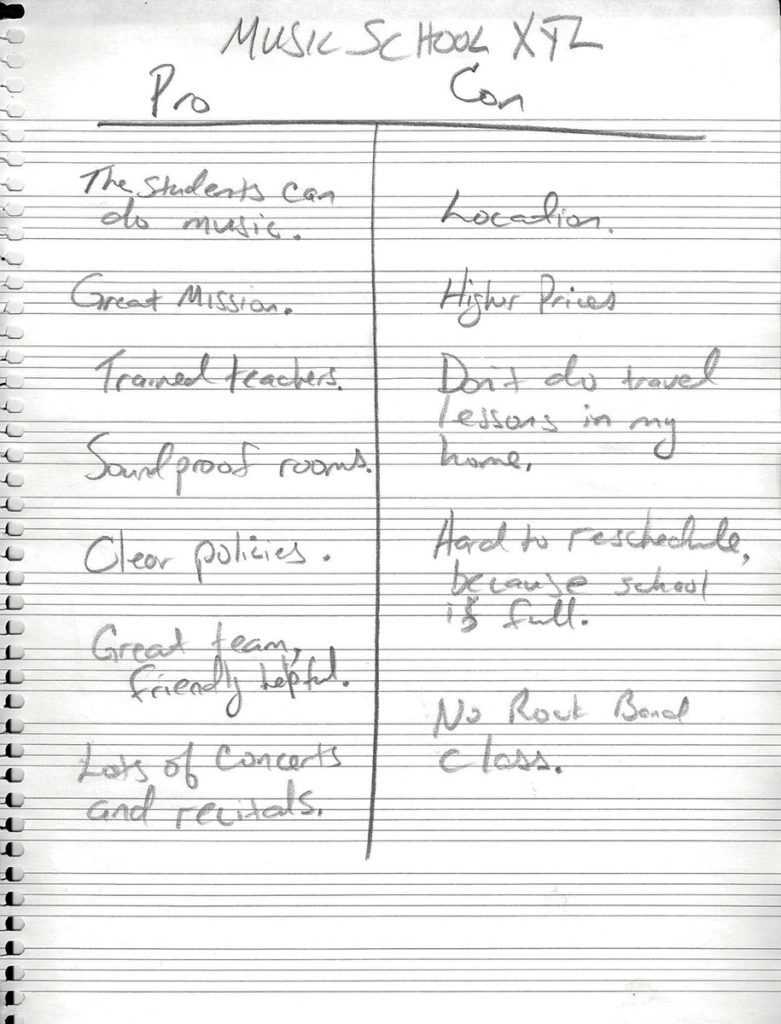 MUSIC SCHOOL XYZ
Pro
Con
The students can
do music.
Great Mission.
Trained teachers.
Soundproof rooms.
Clear policies.
Great team,
friendly helpful.
Lots of concerts
and recitals.
Location.
Higher Prices
Don't do travel
lessons in my
home.
Hard to reschedule,
because school
is full.
No Rock Band
class.